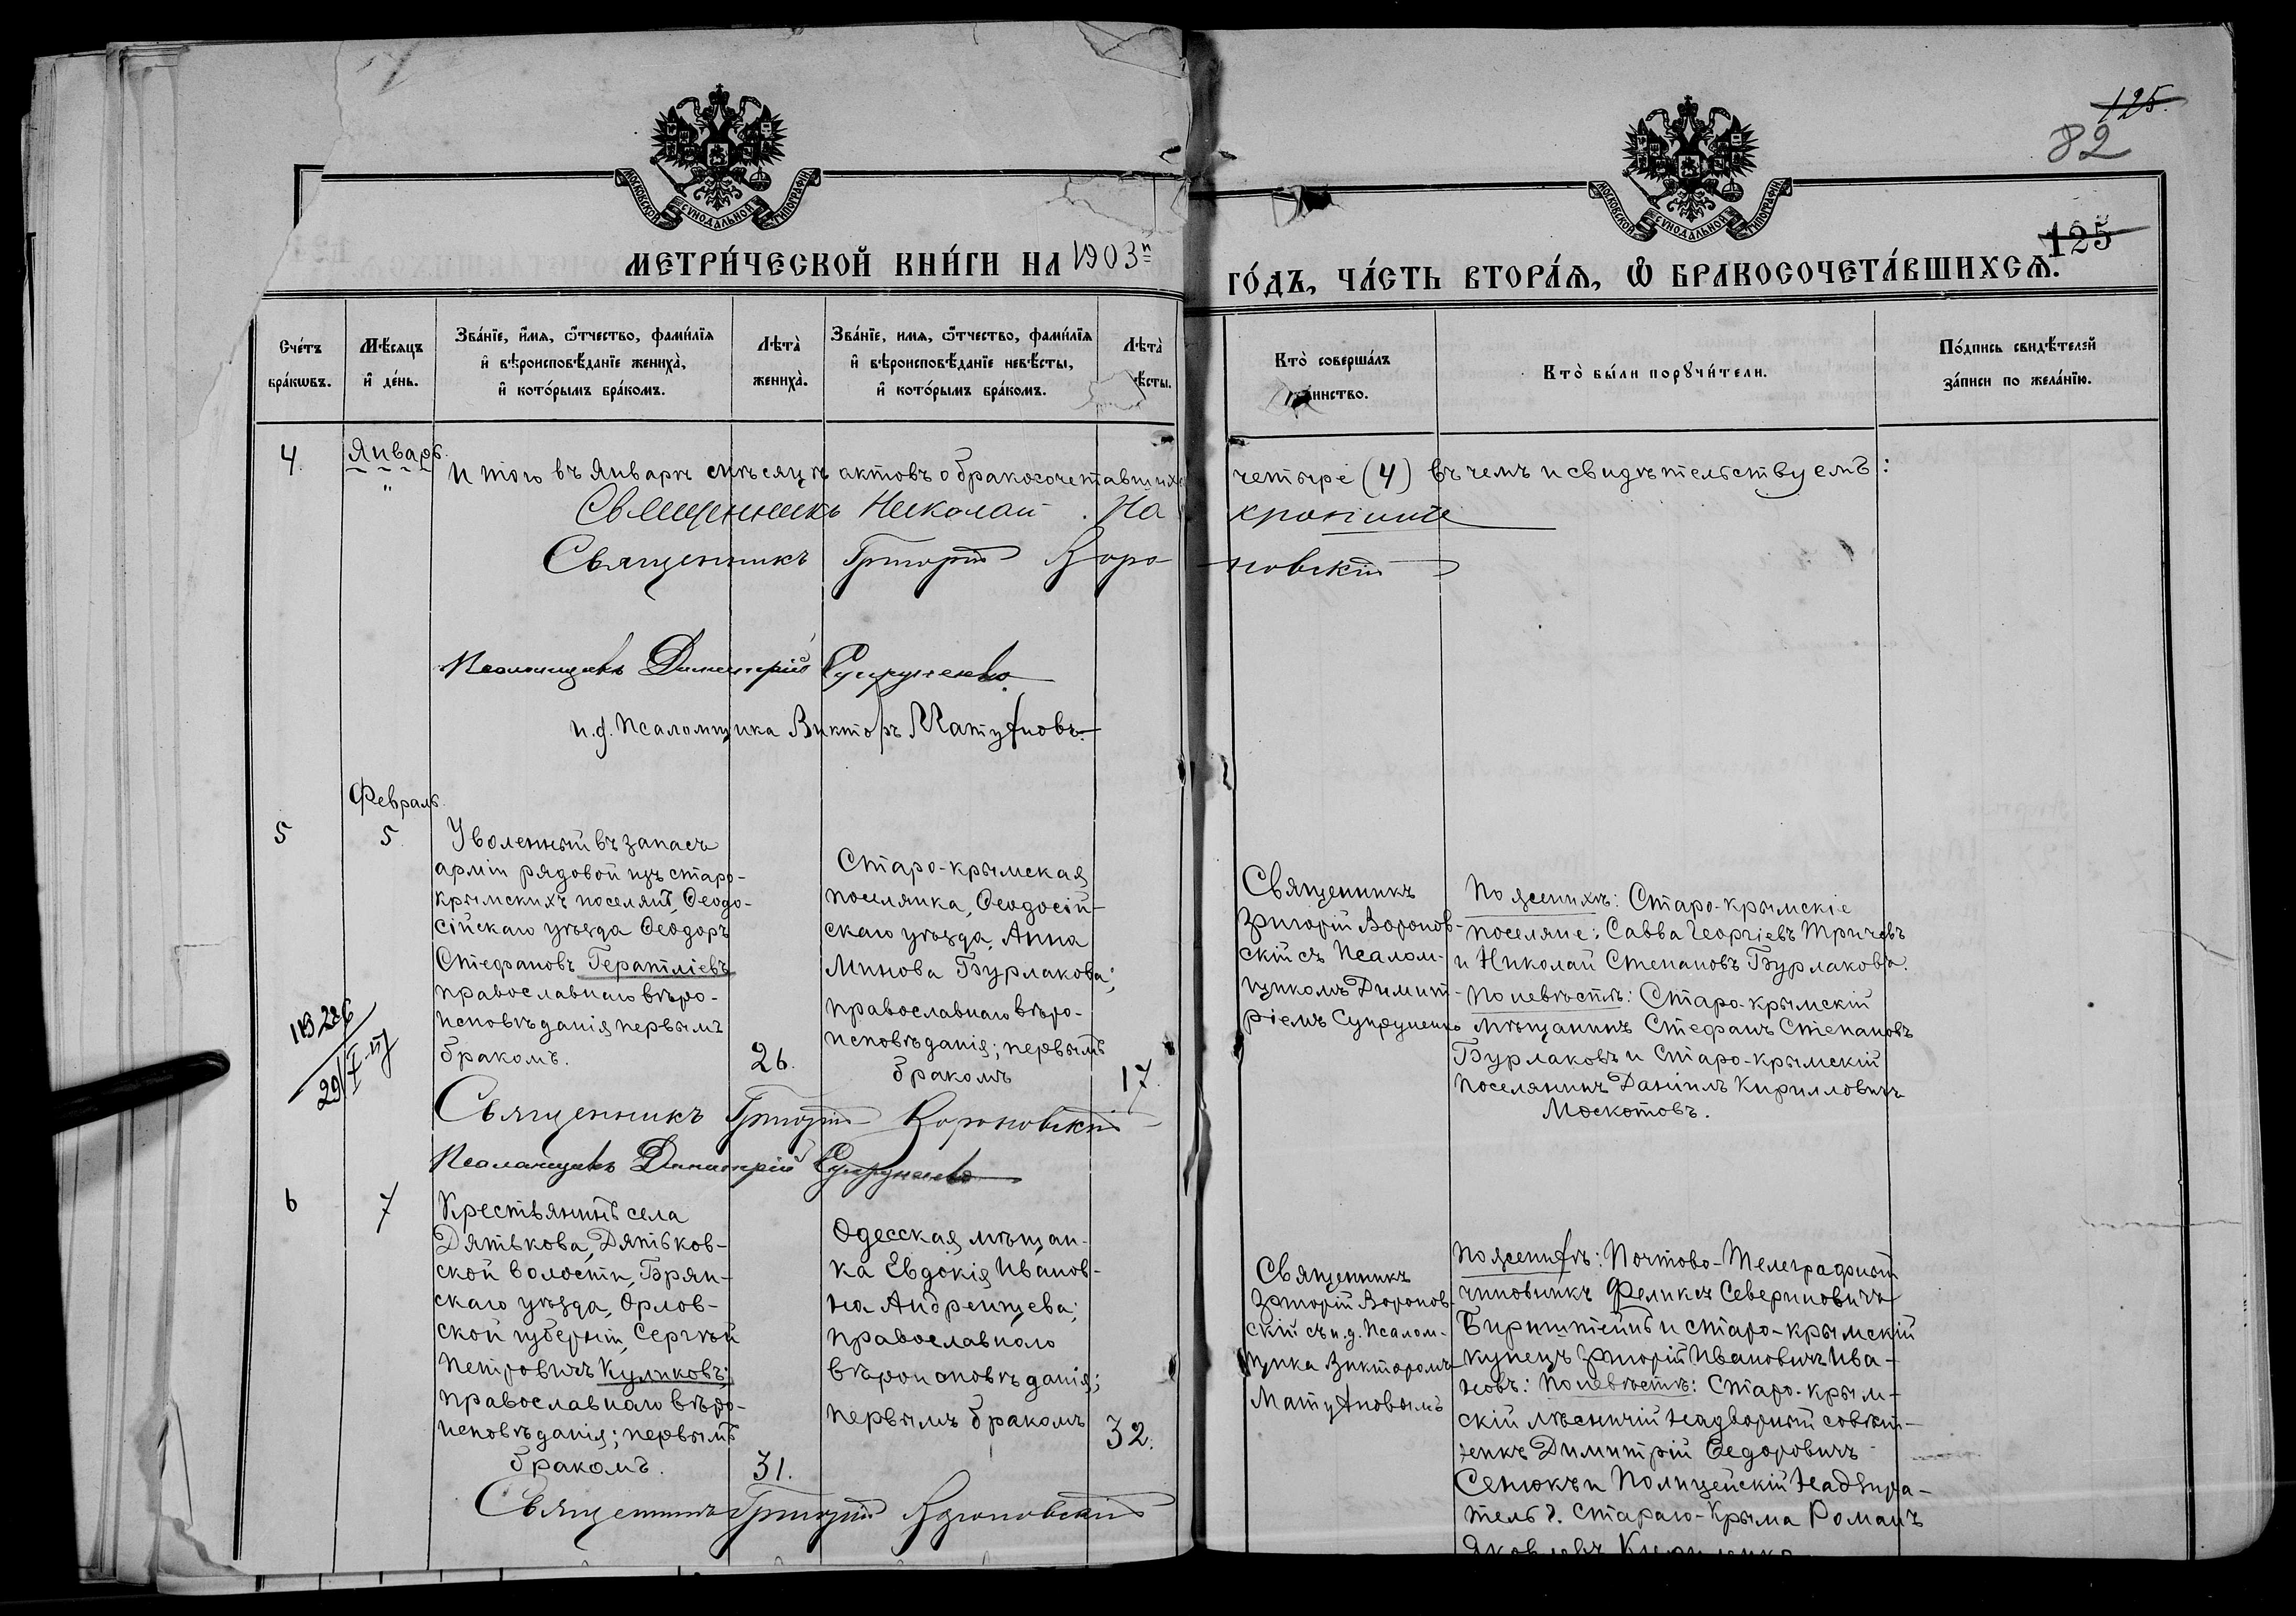 125.
82
125
МОСКОВСКОЙ СѴНОДАЛЬНОЙ ТИПОГРАФІИ
МОСКОВСКОЙ СѴНОДАЛЬНОЙ ТИПОГРАФІИ
МЕТРИ́ЧЕСКОЙ КНИ́ГИ НА 1903й
ГО́ДЪ, ЧА́СТЬ ВТОРА́Ѧ, Ѽ БРАКОСОЧЕТА́ВШИХСѦ.
Сче́тъ
бра́кѡвъ.
Мѣ́сѧцъ
и҆ де́нь.
Зва́нїе, и҆́мѧ, ѻ҆́тчество, фами́лїѧ
и҆ вѣроисповѣ́данїе жениха̀,
и҆ кото́рымъ бра́комъ.
Лѣта̀
жениха̀.
Зва́нїе, имѧ, ѻ҆́тчество, фами́лїѧ
и҆ вѣроисповѣ́данїе невѣ́сты,
и҆ кото́рымъ бра́комъ.
Лѣта̀
ѣсты.
Кто̀ соверша́лъ
таинство.
Кто̀ бы́ли порꙋчи́тели.
По́дпись свидѣ́телей
за́писи по жела́нїю.
4.
Январь.
"
И того въ Январѣ мѣсяцѣ актовъ о бракосочетавшихся четыре (4) въ чемъ и свидѣтельствуемъ:
Священникъ Николай
Священникъ Григорій Вороновскій
Псаломщикъ Димитрій Супруненко
и.д. Псаломщика Викторъ
Февраль.
5
5.
Уволенный въ запасъ
арміи рядовой изъ старо-
крымскихъ поселянъ, Ѳеодо-
сійскаго уѣзда Ѳеодоръ
Стефановъ
православнаго вѣро-
исповѣданія первымъ
бракомъ.
26.
Старо-крымская
поселянка, Ѳеодосій-
скаго уѣзда, Анна
Минова Бурлакова;
православнаго вѣро-
исповѣданія; первымъ
бракомъ
17.
Священникъ
Григорій Воронов-
скій съ Псалом-
щикомъ Димит-
ріемъ Супруненко
По женихѣ: Старо-крымскіе
поселяне: Савва Георгіевъ
и Николай Степановъ Бурлаковъ.
По невѣстѣ: Старо-крымскій
мѣщанинъ Стефанъ Степановъ
Бурлаковъ и Старо-крымскій
поселянинъ Даніилъ Кирилловичъ
Москотовъ.
Священникъ Григорій Вороновскій
Псаломщикъ Димитрій Супруненко
6
7
Крестьянинъ села
Дятькова, Дятьков-
ской волости, Брян-
скаго уѣзда, Орлов-
ской губерніи, Сергѣй
Петровичъ Куликовъ;
православнаго вѣро-
исповѣданія; первымъ
бракомъ.
31.
Одесская мѣщан-
ка Евдокія Иванов-
на Андреищева;
православнаго
вѣроисповѣданія;
первымъ бракомъ
32.
Священникъ
Григорій Воронов-
скій съ и.д. Псалом-
щика Викторомъ
По женихѣ: Почтово-Телеграфный
чиновникъ Феликсъ Севериновичъ
и старо-крымскій
купецъ Григорій Ивановичъ Ива-
новъ: По невѣстѣ: Старо-крым-
скій лѣсничій Надворный совѣт-
никъ Димитрій Ѳедоровичъ
Сенюкъ и Полицейскій Надзира-
тель г. Стараго-Крыма Романъ
Яковлевъ
Священникъ Григорій Вороновскій